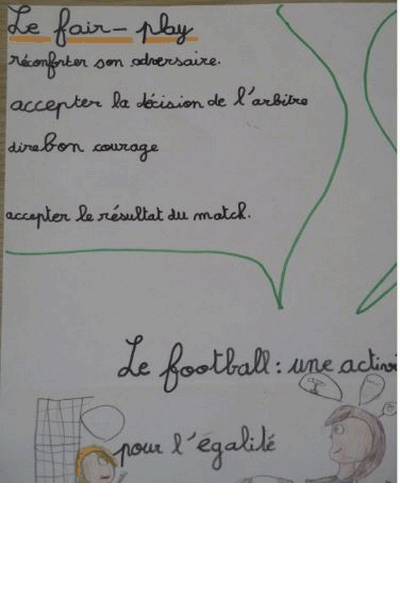 Le fair-play
réconforter son adversaire.
accepter la décision de l'arbitre
dire bon courage
accepter le résultat du match.
Le football : une
pour l'égalité